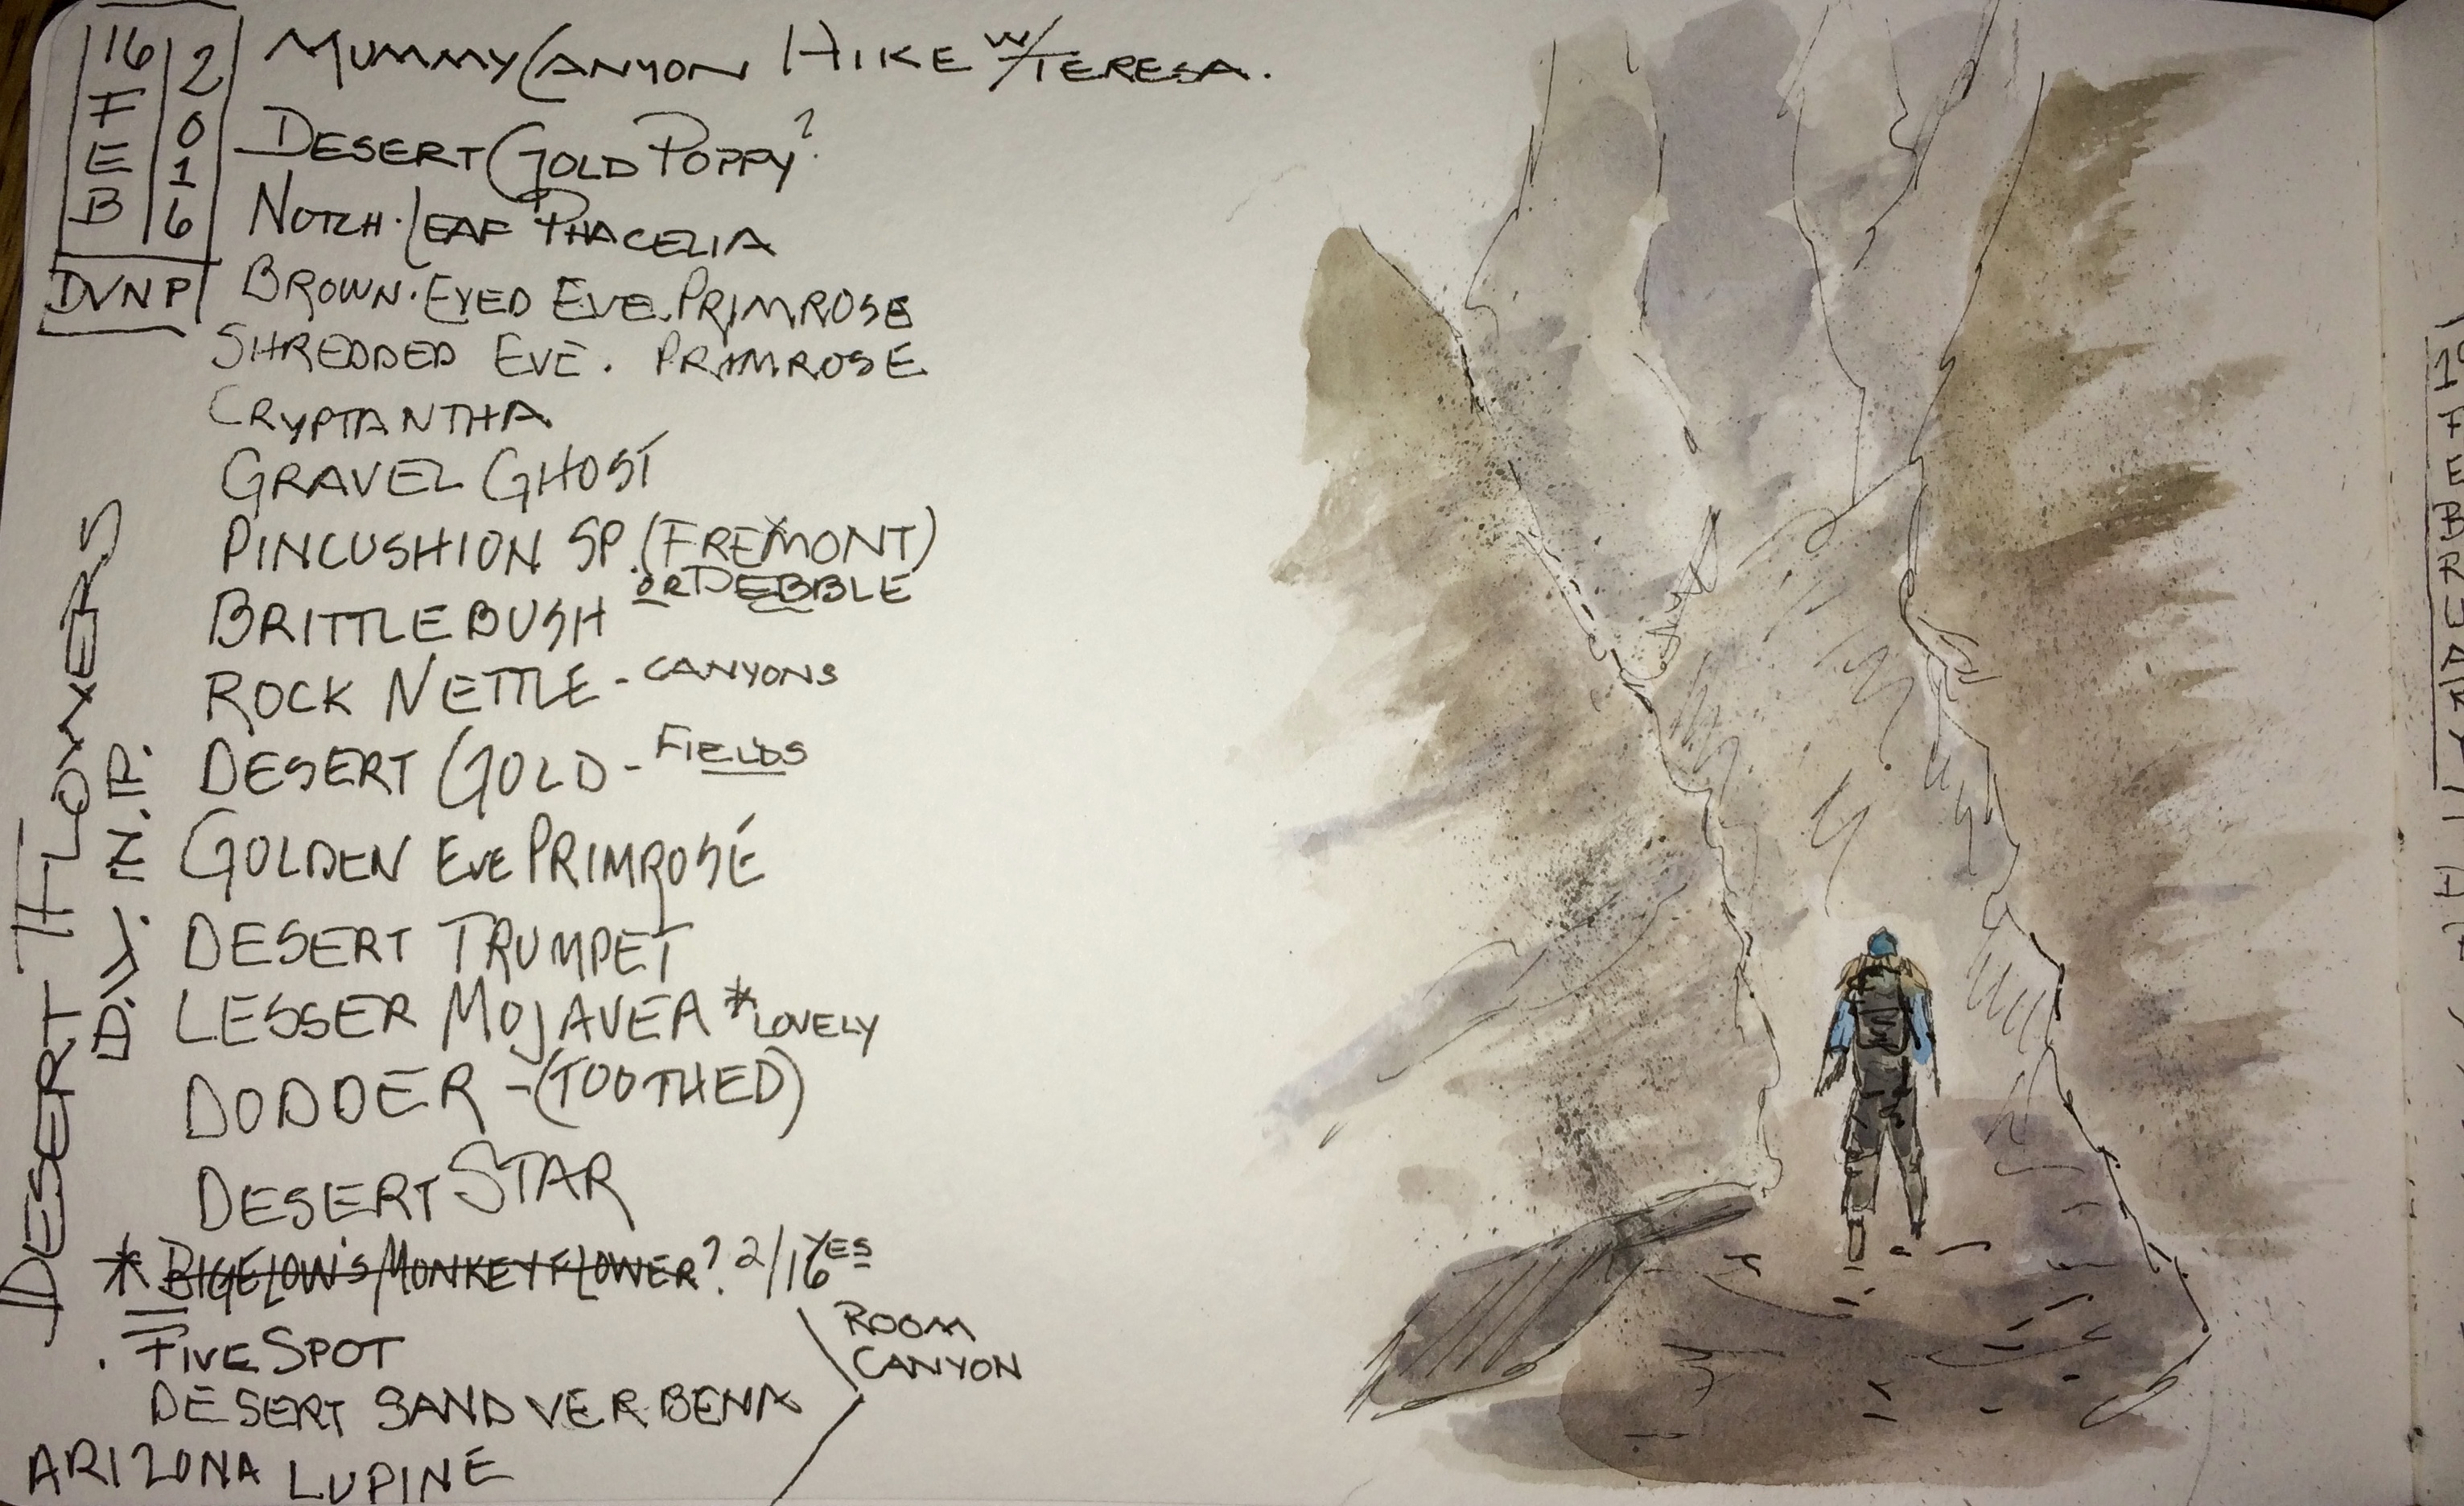 16 FEB 2016
DVNP
MUMMY CANYON HIKE W/TERESA.
DESERT GOLD POPPY?
NOTCH·LEAF PHACELIA
BROWN·EYED EVE. PRIMROSE
SHREDDED EVE. PRIMROSE
CRYPTANTHA
GRAVEL GHOST
PINCUSHION SP. (FREMONT)
OR PEBBLE
BRITTLEBUSH
ROCK NETTLE - CANYONS
DESERT GOLD - FIELDS
GOLDEN EVE PRIMROSE
DESERT TRUMPET
LESSER MOJAVEA *LOVELY
DODDER - (TOOTHED)
DESERT STAR
* BIGELOW'S MONKEYFLOWER? 2/16 YES
FIVE SPOT
DESERT SAND VERBENA
ROOM
CANYON
ARIZONA LUPINE
DESERT FLOWERS
D.V.N.P.
FEBRUARY